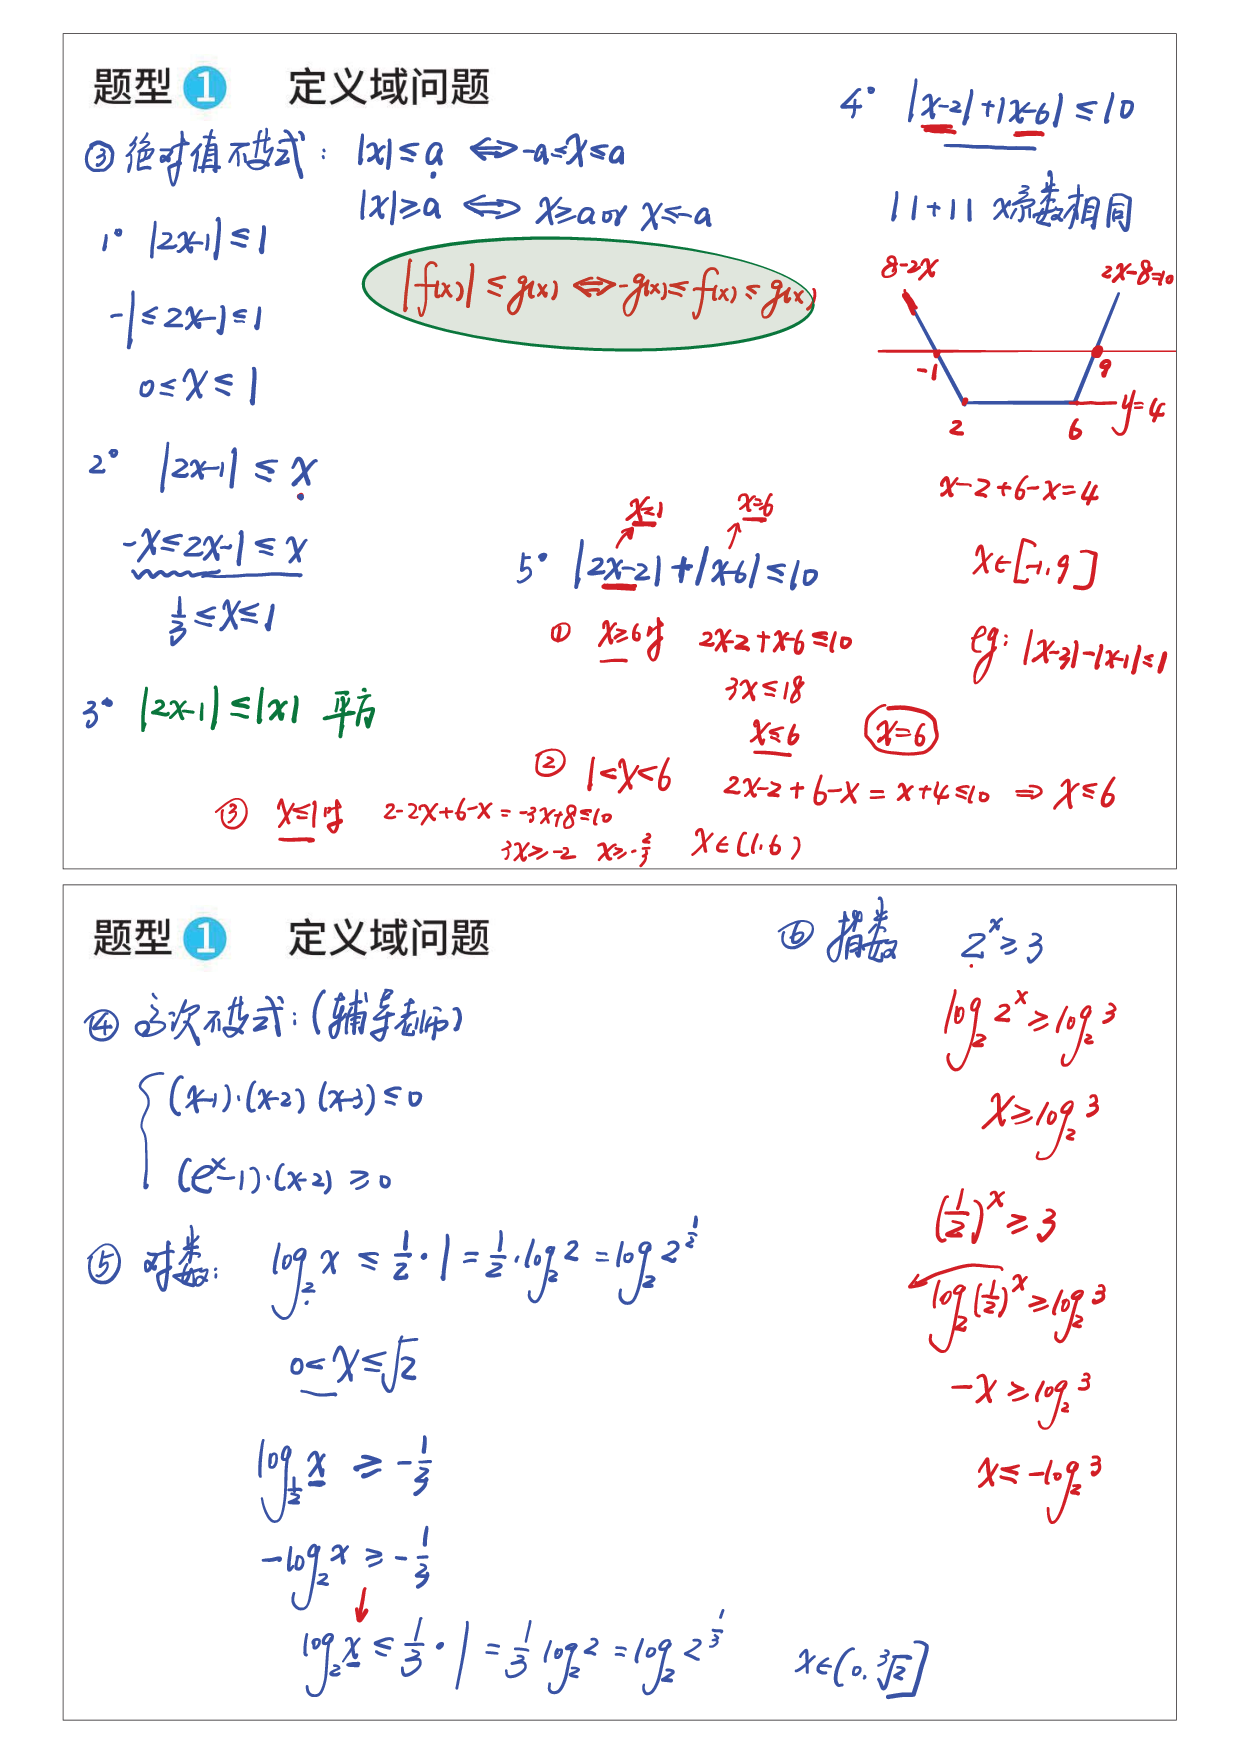 题型 1 定义域问题
③ 绝对值不等式: |x| ≤ a ⟺ -a ≤ x ≤ a
|x| ≥ a ⟺ x ≥ a or x ≤ -a
|f(x)| ≤ g(x) ⟺ -g(x) ≤ f(x) ≤ g(x)
1° |2x-1| ≤ 1
-1 ≤ 2x-1 ≤ 1
0 ≤ x ≤ 1
2° |2x-1| ≤ x
-x ≤ 2x-1 ≤ x
1/3 ≤ x ≤ 1
3° |2x-1| ≤ |x| 平方
4° |x-2| + |x-6| ≤ 10
| | + | | x系数相同
8-2x 2x-8=10
-1 9
2 6 y=4
x-2+6-x=4
x∈[-1,9]
eg: |x-3|-|x-1| ≤ 1
x=1 x=6
5° |2x-2| + |x-6| ≤ 10
① x≥6时 2x-2+x-6≤10
3x≤18
x≤6 x=6
② 1<x<6 2x-2+6-x = x+4≤10 ⇒ x≤6
x∈(1,6)
③ x≤1时 2-2x+6-x = -3x+8≤10
3x≥-2 x≥-2/3
题型 1 定义域问题
④ 高次不等式: (辅导老师)
(x-1)·(x-2)(x-3) ≤ 0
(e^x-1)·(x-2) ≥ 0
⑤ 对数: log₂x ≤ 1/2·1 = 1/2·log₂2 = log₂2^(1/2)
0<x≤√2
log_(1/2) x ≥ -1/3
-log₂x ≥ -1/3
log₂x ≤ 1/3·1 = 1/3 log₂2 = log₂2^(1/3) x∈(0, ∛2]
⑥ 指数 2^x ≥ 3
log₂2^x ≥ log₂3
x ≥ log₂3
(1/2)^x ≥ 3
log₂(1/2)^x ≥ log₂3
-x ≥ log₂3
x ≤ -log₂3